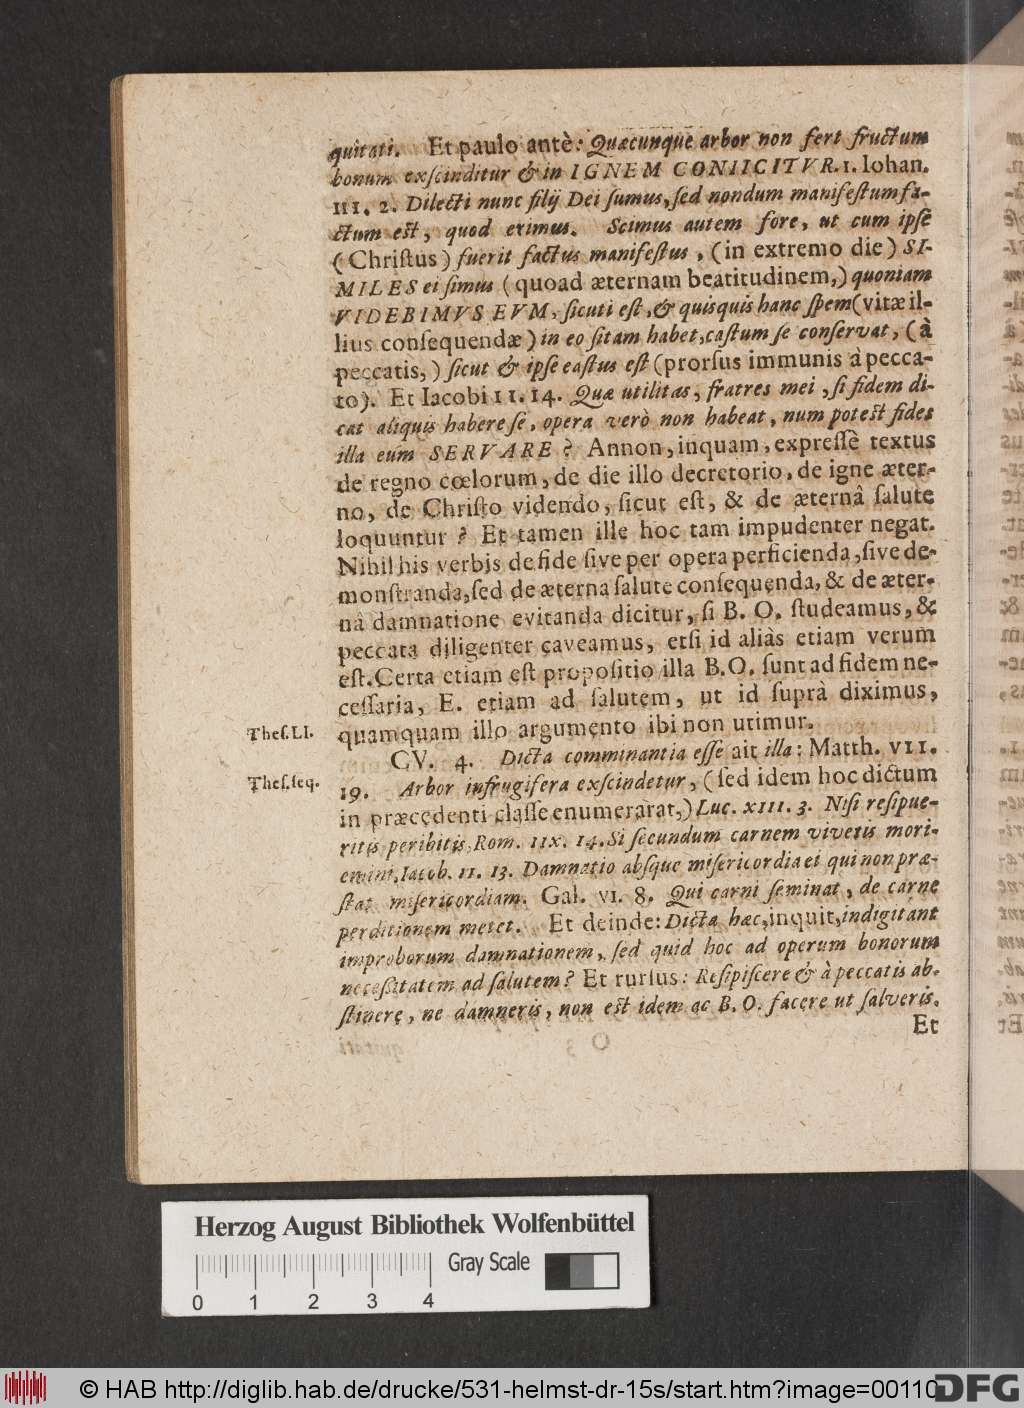 quitati. Et paulo antè: Quæcunque arbor non fert fructum
bonum exſcinditur & in IGNEM CONIICITVR. 1. Iohan.
III. 2. Dilecti nunc filij Dei ſumus, ſed nondum manifeſtum fa-
ctum eſt, quod erimus. Scimus autem fore, ut cum ipſe
(Chriſtus) fuerit factus manifeſtus, (in extremo die) SI-
MILES ei ſimus (quoad æternam beatitudinem,) quoniam
VIDEBIMVS EVM, ſicuti eſt, & quisquis hanc ſpem (vitæ il-
lius conſequendæ) in eo ſitam habet, caſtum ſe conſervat, (à
peccatis,) ſicut & ipſe caſtus eſt (prorſus immunis à pecca-
to). Et Iacobi II. 14. Quæ utilitas, fratres mei, ſi fidem di-
cat aliquis habere ſe, opera verò non habeat, num poteſt fides
illa eum SERVARE? Annon, inquam, expreſſè textus
de regno cœlorum, de die illo decretorio, de igne æter-
no, de Chriſto videndo, ſicut eſt, & de æternâ ſalute
loquuntur? Et tamen ille hoc tam impudenter negat.
Nihil his verbis de fide ſive per opera perficienda, ſive de-
monſtranda, ſed de æterna ſalute conſequenda, & de æter-
nâ damnatione evitanda dicitur, ſi B. O. ſtudeamus, &
peccata diligenter caveamus, etſi id aliàs etiam verum
eſt. Certa etiam eſt propoſitio illa B. O. ſunt ad fidem ne-
ceſſaria, E. etiam ad ſalutem, ut id ſuprà diximus,
Theſ. LI.
quamquam illo argumento ibi non utimur.
CV. 4. Dicta comminantia eſſe ait illa: Matth. VII.
Theſ. ſeq.
19. Arbor infrugifera exſcindetur, (ſed idem hoc dictum
in præcedenti claſſe enumerarat,) Luc. XIII. 3. Niſi reſipue-
ritis peribitis, Rom. IIX. 14. Si ſecundum carnem vivetis mori-
emini, Iacob. II. 13. Damnatio abſque miſericordia ei qui non præ-
ſtat miſericordiam. Gal. VI. 8. Qui carni ſeminat, de carne
perditionem metet. Et deinde: Dicta hæc, inquit, indigitant
improborum damnationem, ſed quid hoc ad operum bonorum
neceſſitatem ad ſalutem? Et rurſus: Reſipiſcere & à peccatis ab-
ſtinere, ne damneris, non eſt idem ac B. O. facere ut ſalveris.
Et
Herzog August Bibliothek Wolfenbüttel
Gray Scale
0 1 2 3 4
© HAB http://diglib.hab.de/drucke/531-helmst-dr-15s/start.htm?image=00110
DFG